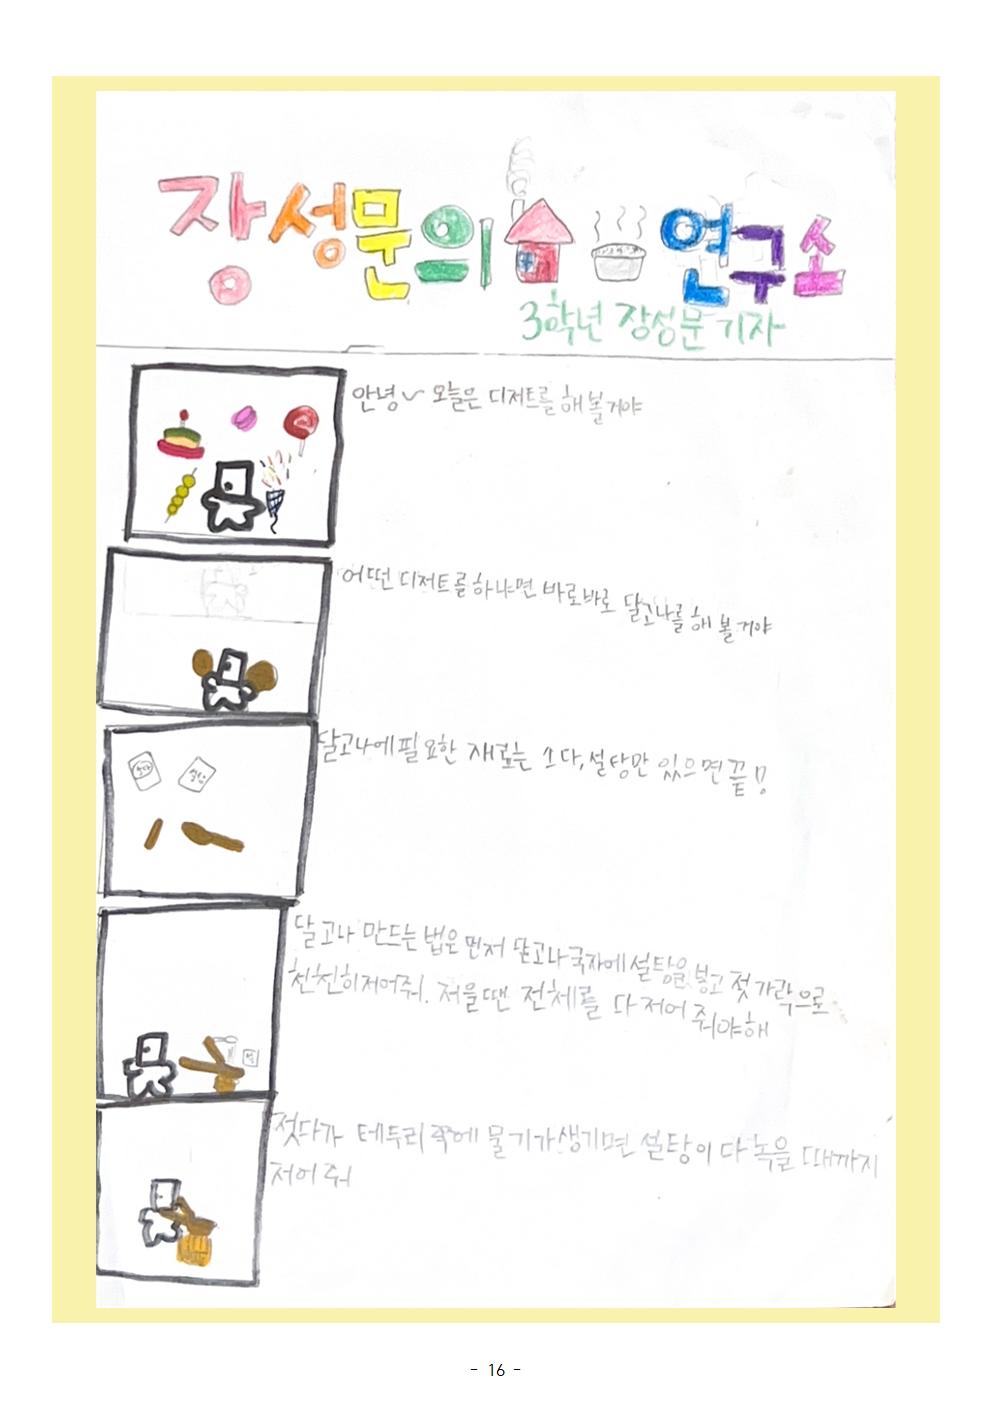 장성문의 연구소
3학년 장성문 기자
안녕~ 오늘은 디저트를 해 볼거야
어떤 디저트를 하냐면 바로바로 달고나를 해 볼 거야
달고나에 필요한 재료는 소다, 설탕만 있으면 끝!!
소다 설탕
달고나 만드는 법은 먼저 달고나 국자에 설탕을 붛고 젓가락으로
천천히 저어줘. 저을 땐 전체를 다 저어 줘야해
젓다가 테두리 쪽에 물기가 생기면 설탕이 다 녹을 때까지
저어 줘
- 16 -